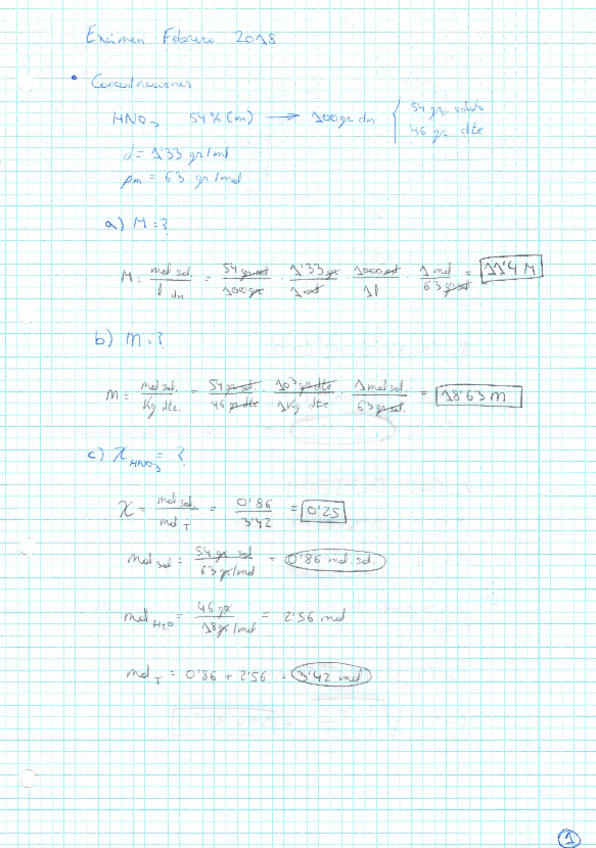 Exámen Febrero 2018
• Concentraciones.
HNO3 54% (m) → 100 gr dn { 54 gr soluto
46 gr dte
d = 1'33 gr/ml
pm = 63 gr/mol
a) M = ?
M = mol sol. / l dn = 54 gr sol / 100 gr · 1'33 gr / 1 ml · 1000 ml / 1 l · 1 mol / 63 gr sol = 11'4 M
b) m = ?
m = mol sol. / Kg dte. = 54 gr sol. / 46 gr dte · 10³ gr dte / 1 Kg dte · 1 mol sol. / 63 gr sol. = 18'63 m
c) χ HNO3 = ?
χ = mol sol. / mol T = 0'86 / 3'42 = 0'25
mol sol = 54 gr sol / 63 gr/mol = 0'86 mol. sol.
mol H2O = 46 gr / 18 gr/mol = 2'56 mol
mol T = 0'86 + 2'56 = 3'42 mol
1